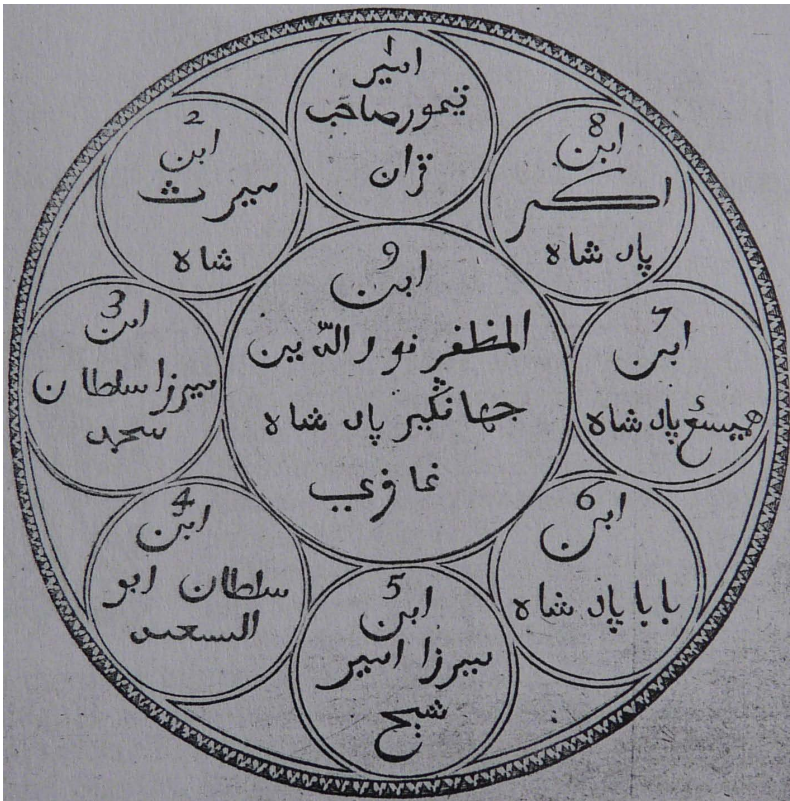 امير
تيمور صاحب
قران
2
ابن
ميرث
شاه
3
ابن
ميرزا سلطان
4
ابن
سلطان ابو
السعيد
5
ابن
ميرزا امير
شيخ
6
ابن
بابا پاد شاه
7
ابن
پاد شاه
8
ابن
اكبر
پاد شاه
9
ابن
المظفر نور الدين
جهانگير پاد شاه